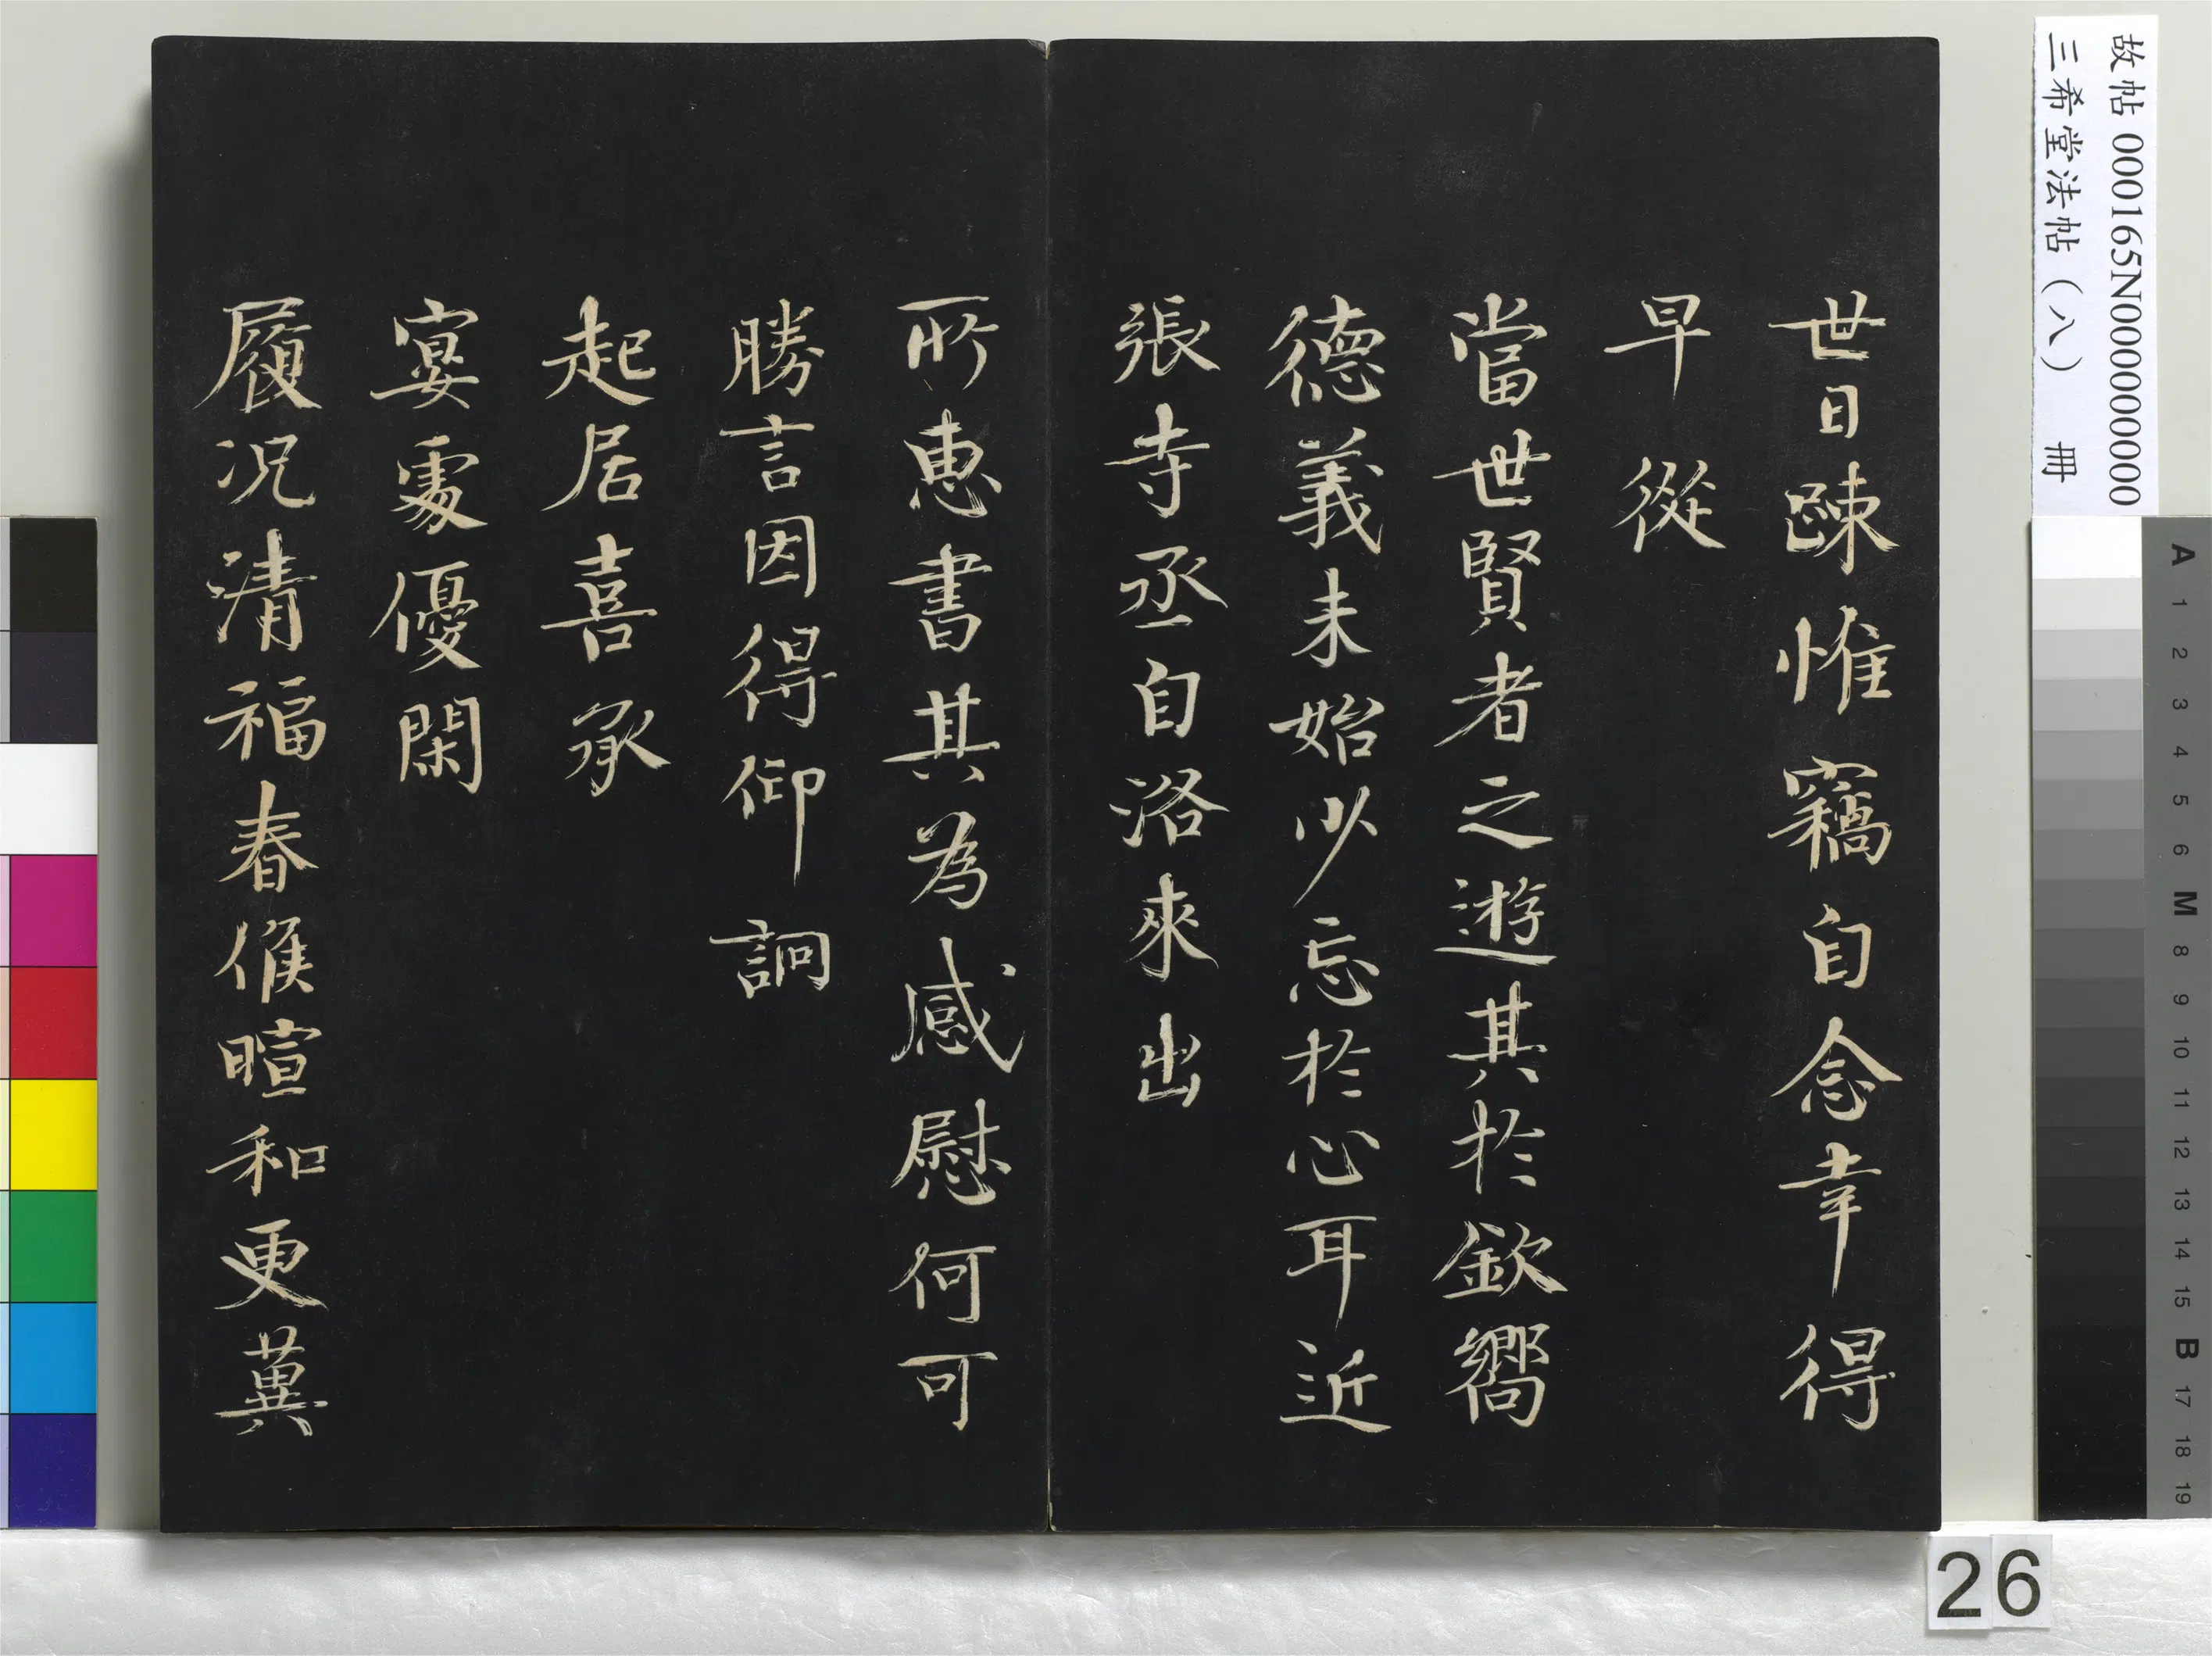 世日踈惟竊自念幸得
早從
當世賢者之遊其於欽嚮
德義未始少忘於心耳近
張寺丞自洛來出
所惠書其為感慰何可
勝言因得仰詗
起居喜承
宴處優閑
履况清福春候暄和更冀
故帖 000165N000000000
三希堂法帖（八） 冊
26
A 1 2 3 4 5 6 M 8 9 10 11 12 13 14 15 B 17 18 19